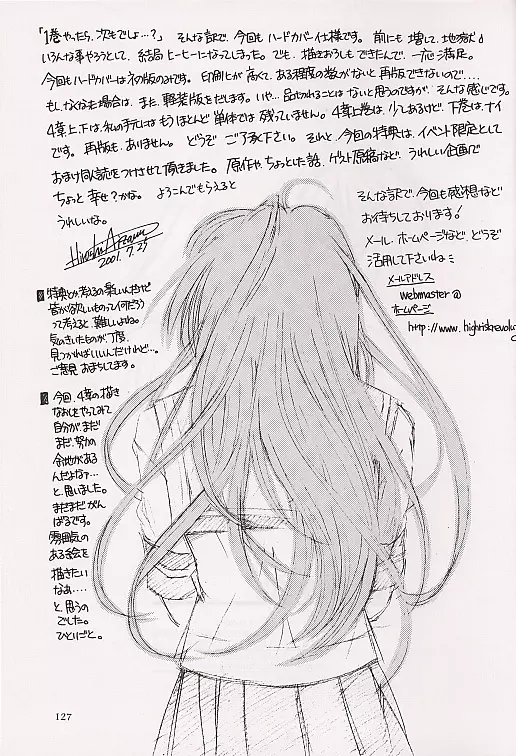 「1巻やったら、次もでしょ…?」 そんな訳で、今回もハードカバー仕様です。前にも増して、地獄♪
いろんな事やろうとして、結局ヒーヒーになってしまった。でも、描きおろしもできたんで、一応満足。
今回もハードカバーはネの版のみです。印刷ヒが高くて、ある程度の数がないと再版できないので‥‥
もし、なくなる場合は、また、軽装版をだします。いや…品切れることはないと思うのですが、そんな感じです。
4章上、下は、私の手元にはもうほとんど単体では残っていません。4章上巻は、少しあるけど、下巻は、ナイ
です。再版も、ありません。どうぞ ご了承下さい。それと、今回の特典は、イベント限定として
おまけ同人誌をつけさせて頂きました。原作や、ちょっとした話、ゲスト原稿など、うれしい企画で
ちょっと幸せ?かな。よろこんでもらえると
うれしいな。
2001. 7.25
そんな訳で、今回も感想など
お待ちしております!
メール、ホームページなど、どうぞ
活用して下さいね
メールアドレス
webmaster@
ホームページ
http://www.highrisk
特典とか考えるの楽しいんだけど
皆が欲しいものって何だろう
って考えると、難しいよね。
気のきいたものが、丁度、
見つかればいいんだけれど…。
ご意見、おまちしてます。
今回、4章の描き
なおしをやってみて
自分が、まだ
まだ、努力の
余地がある
んだよなァ…
と思いました。
まだまだがん
ばるです。
雰囲気の
ある絵を
描きたい
なぁ‥‥
と、思うの
でした。
ひとりごと。
127